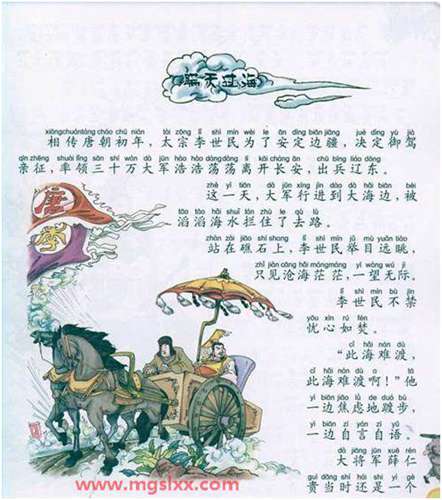 瞒天过海
xiāngchuántáng cháo chū nián tài zōng lǐ shì mín wèi le ān dìng biān jiāng jué dìng yù jià
相传唐朝初年,太宗李世民为了安定边疆,决定御驾
qīn zhēng shuài lǐng sān shí wàn dà jūn hào hào dàng dàng lí kāi cháng ān chū bīng liáo dōng
亲征,率领三十万大军浩浩荡荡离开长安,出兵辽东。
zhè yì tiān dà jūn xíng jìn dào dà hǎi biān bèi
这一天,大军行进到大海边,被
tāo tāo hǎi shuǐ lán zhù le qù lù
滔滔海水拦住了去路。
zhàn zài jiāo shí shang lǐ shì mín jǔ mù yuǎn tiào
站在礁石上,李世民举目远眺,
zhǐ jiàn cāng hǎi mángmáng yí wàng wú jì
只见沧海茫茫,一望无际。
lǐ shì mín bù jīn
李世民不禁
yōu xīn rú fén
忧心如焚。
cǐ hǎi nán dù
“此海难渡,
cǐ hǎi nán dù a tā
此海难渡啊!”他
yì biān jiāo lǜ de duó bù
一边焦虑地踱步,
yì biān zì yán zì yǔ
一边自言自语。
dà jiāng jūn xuē rén
大将军薛仁
guì dāng shí hái shì yí gè
贵当时还是一个
唐
李
www.mgslxx.com